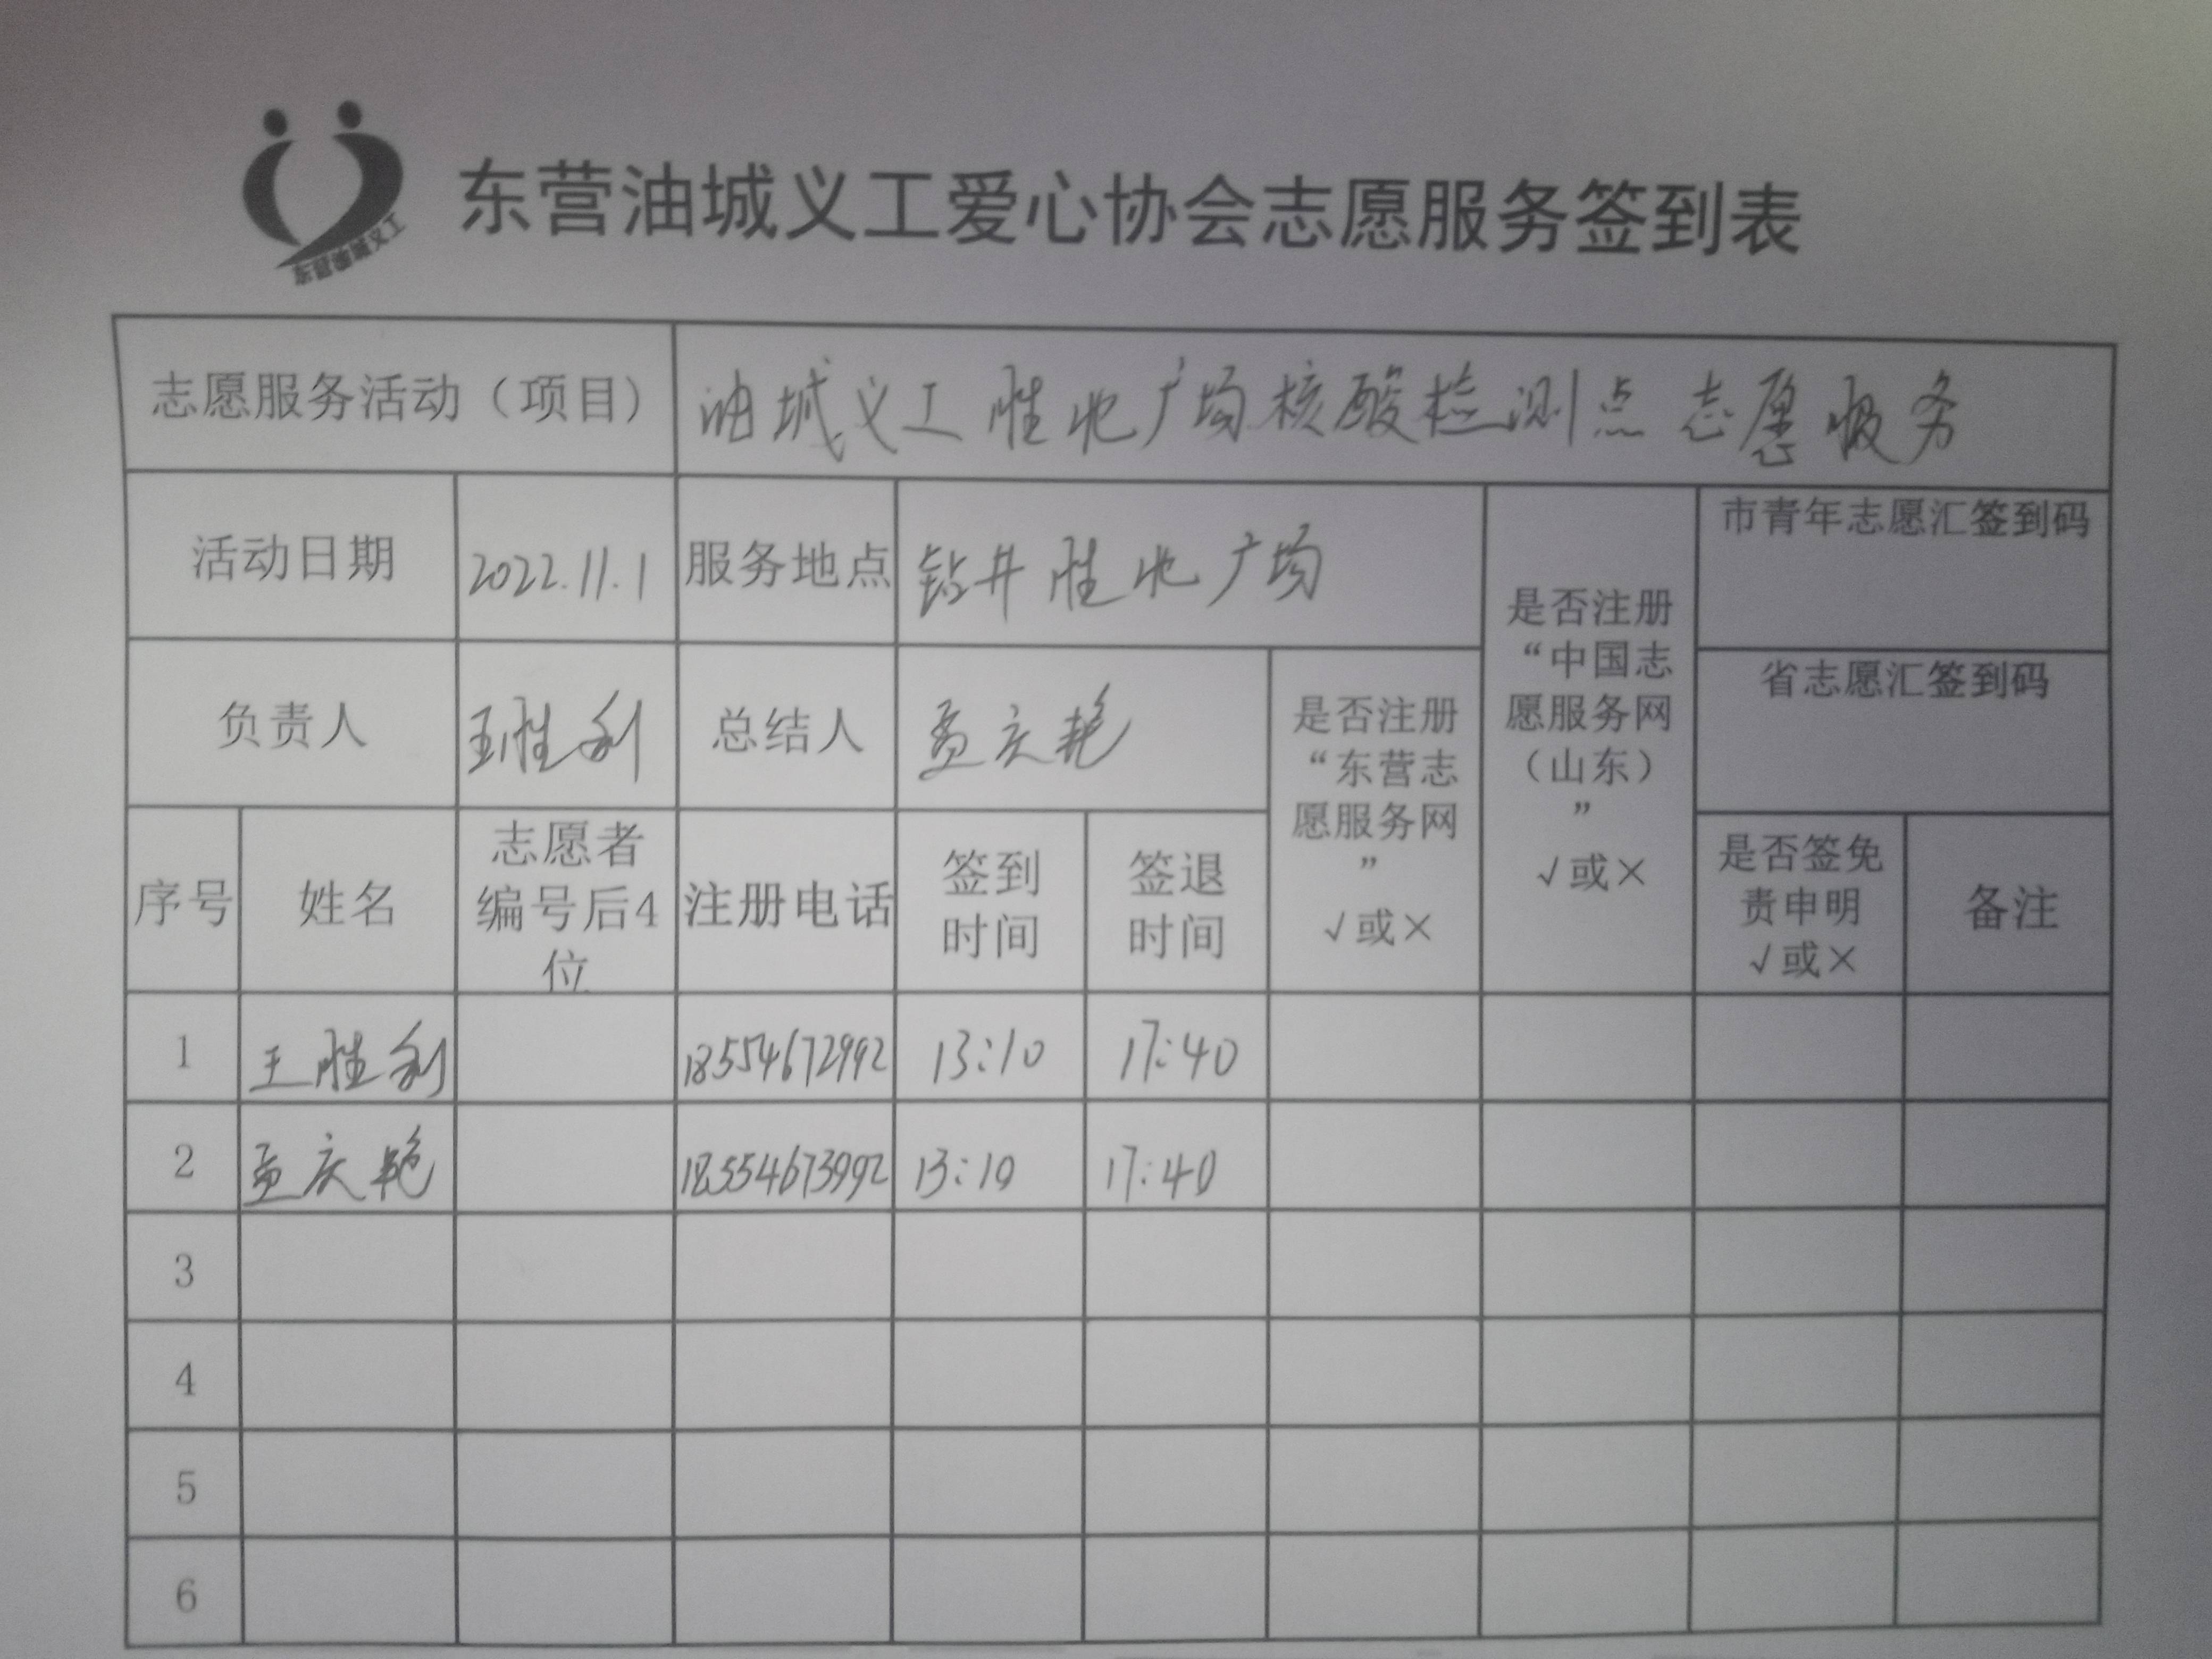 东营油城义工
东营油城义工爱心协会志愿服务签到表
志愿服务活动（项目） 油城义工胜北广场核酸检测点志愿服务
活动日期 2022.11.1 服务地点 钻井胜北广场
是否注册
“中国志
愿服务网
（山东）
”
√或×
市青年志愿汇签到码
省志愿汇签到码
负责人 王胜利 总结人 孟庆艳
是否注册
“东营志
愿服务网
”
√或×
序号 姓名
志愿者
编号后4
位
注册电话
签到
时间
签退
时间
是否签免
责申明
√或×
备注
1 王胜利 18554672992 13:10 17:40
2 孟庆艳 18554673992 13:10 17:40
3
4
5
6